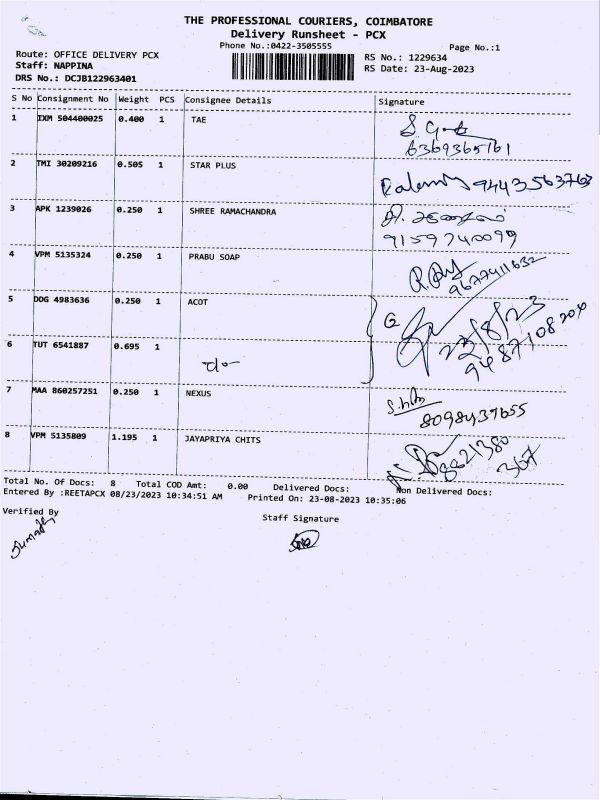 THE PROFESSIONAL COURIERS, COIMBATORE
Delivery Runsheet - PCX
Phone No.:0422-3505555
Page No.:1
Route: OFFICE DELIVERY PCX
Staff: NAPPINA
DRS No.: DCJB122963401
RS No.: 1229634
RS Date: 23-Aug-2023
S No Consignment No Weight PCS Consignee Details Signature
1 IXM 504400025 0.400 1 TAE
6369365161
2 TMI 30209216 0.505 1 STAR PLUS
9443563763
3 APK 1239026 0.250 1 SHREE RAMACHANDRA
9159740099
4 VPM 5135324 0.250 1 PRABU SOAP
9677911632
5 DDG 4983636 0.250 1 ACOT
23/8/23
6 TUT 6541887 0.695 1 do
9487108200
7 MAA 860257251 0.250 1 NEXUS
8098437655
8 VPM 5135809 1.195 1 JAYAPRIYA CHITS
367
Total No. Of Docs: 8 Total COD Amt: 0.00 Delivered Docs: Non Delivered Docs:
Entered By :REETAPCX 08/23/2023 10:34:51 AM Printed On: 23-08-2023 10:35:06
Verified By
Staff Signature